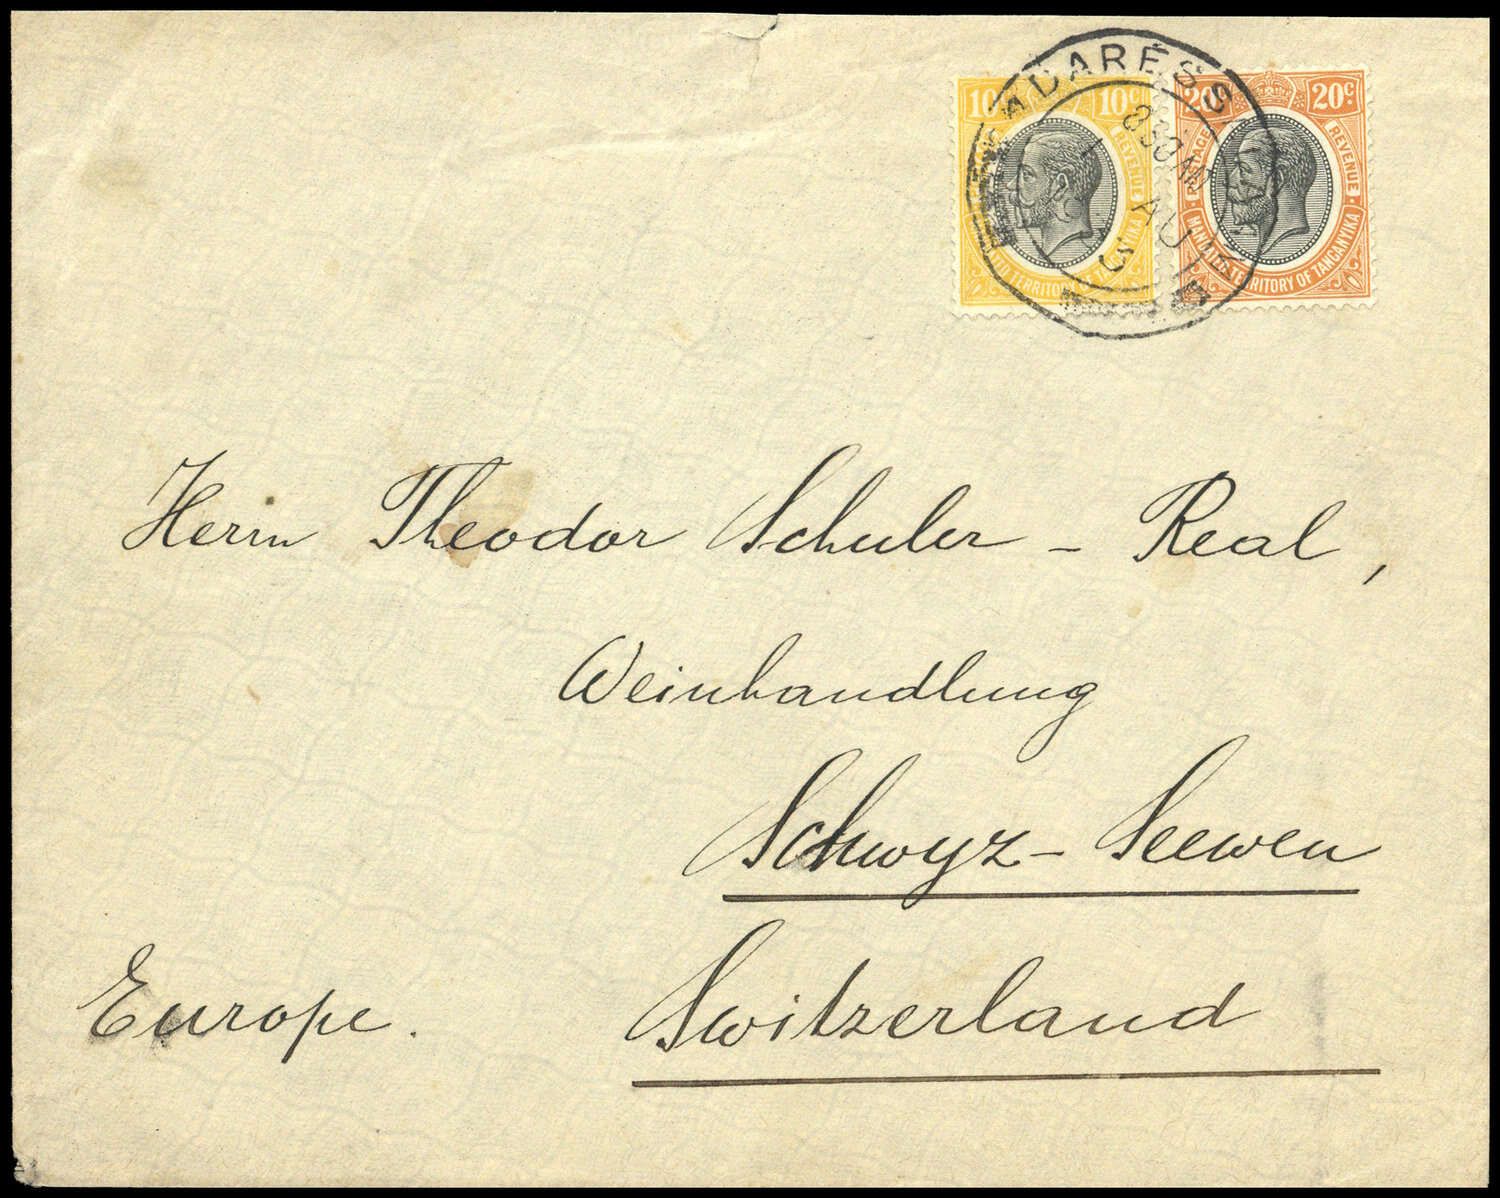 10 10c
REVENUE
TERRITORY OF
20 20c
POSTAGE REVENUE
MANDATED TERRITORY OF TANGANYIKA
DARESS
AU
Herrn Theodor Schuler - Real,
Weinhandlung
Schwyz - Seewen
Switzerland
Europe.